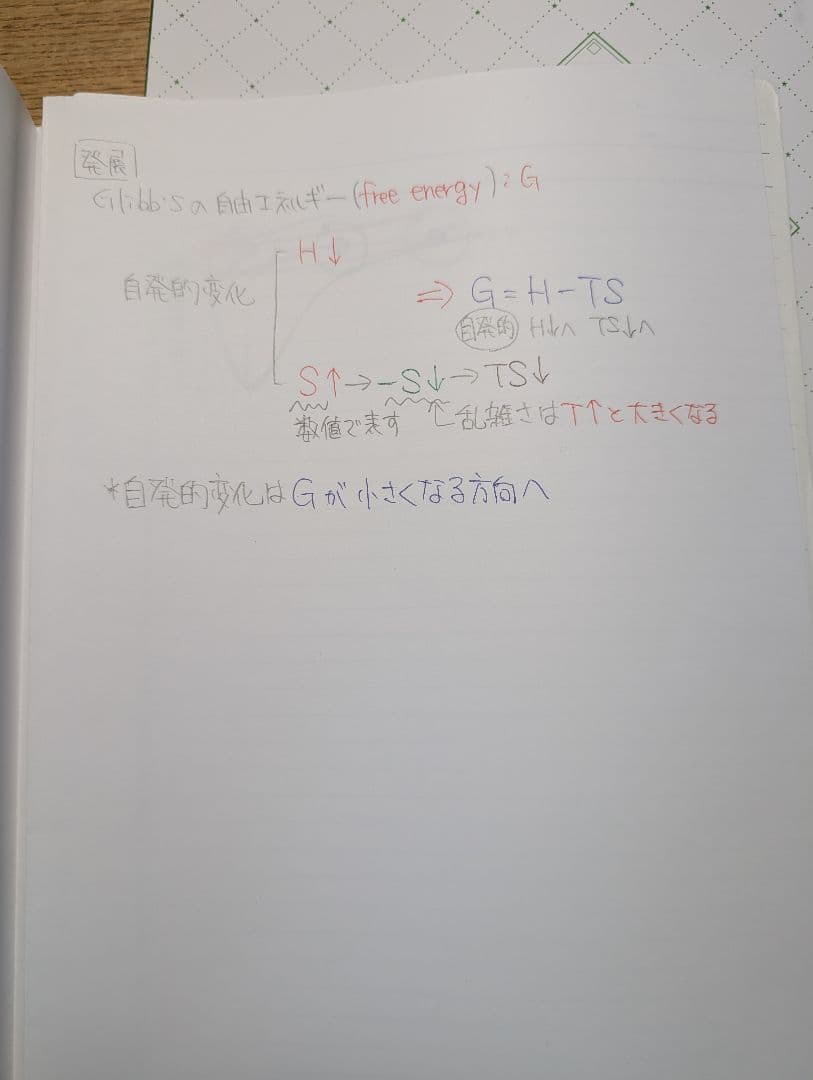 発展
Gibb'sの自由エネルギー(free energy):G
H↓
自発的変化
⇒ G=H-TS
自発的 H↓へ TS↓へ
S↑→-S↓→TS↓
数値で表す
乱雑さはT↑と大きくなる
*自発的変化はGが小さくなる方向へ